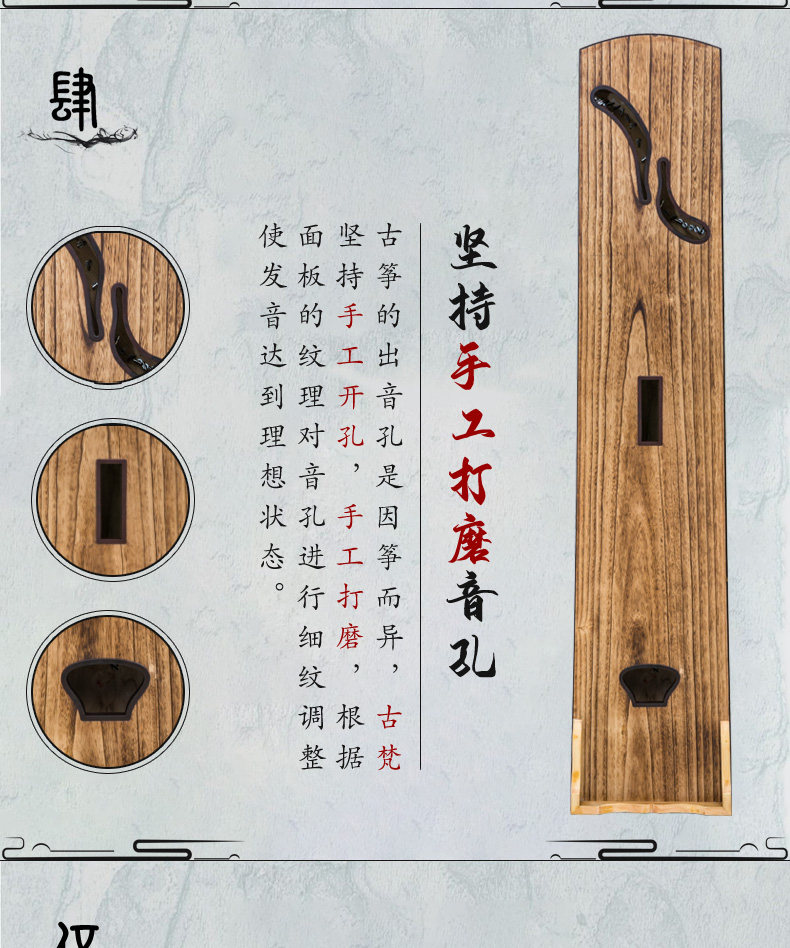 肆
坚持手工打磨音孔
古筝的出音孔是因筝而异，古梵
坚持手工开孔，手工打磨，根据
面板的纹理对音孔进行细纹调整
使发音达到理想状态。